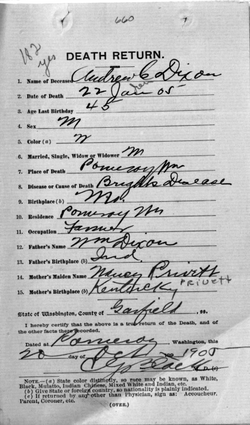 660
yes
DEATH RETURN.
1. Name of Deceased Andrew C Dixon
2. Date of Death 22 Jan 05
3. Age Last Birthday 45
4. Sex M
5. Color (a) W
6. Married, Single, Widow or Widower M
7. Place of Death Pomeroy Wn
8. Disease or Cause of Death Brights Disease
9. Birthplace (b) Mo.
10. Residence Pomeroy Wn
11. Occupation Farmer
12. Father's Name Wm Dixon
13. Father's Birthplace (b) Ind.
14. Mother's Maiden Name Nancy Privitt
PRIVETT
15. Mother's Birthplace (b) Kentucky
State of Washington, County of Garfield, ss.
I hereby certify that the above is a true return of the Death, and of the other facts there recorded.
Dated at Pomeroy Washington, this
20 day of 1905
NOTE.—(a) State color distinctly, as men may be known, as White,
Black, Mulatto, Indian, Chinese, Mixed White and Indian, etc.
(b) State or foreign country, so nationality is plainly indicated.
(c) If returned by any other than Physician, sign as: Accoucheur,
Parent, Coroner, etc.
(OVER.)